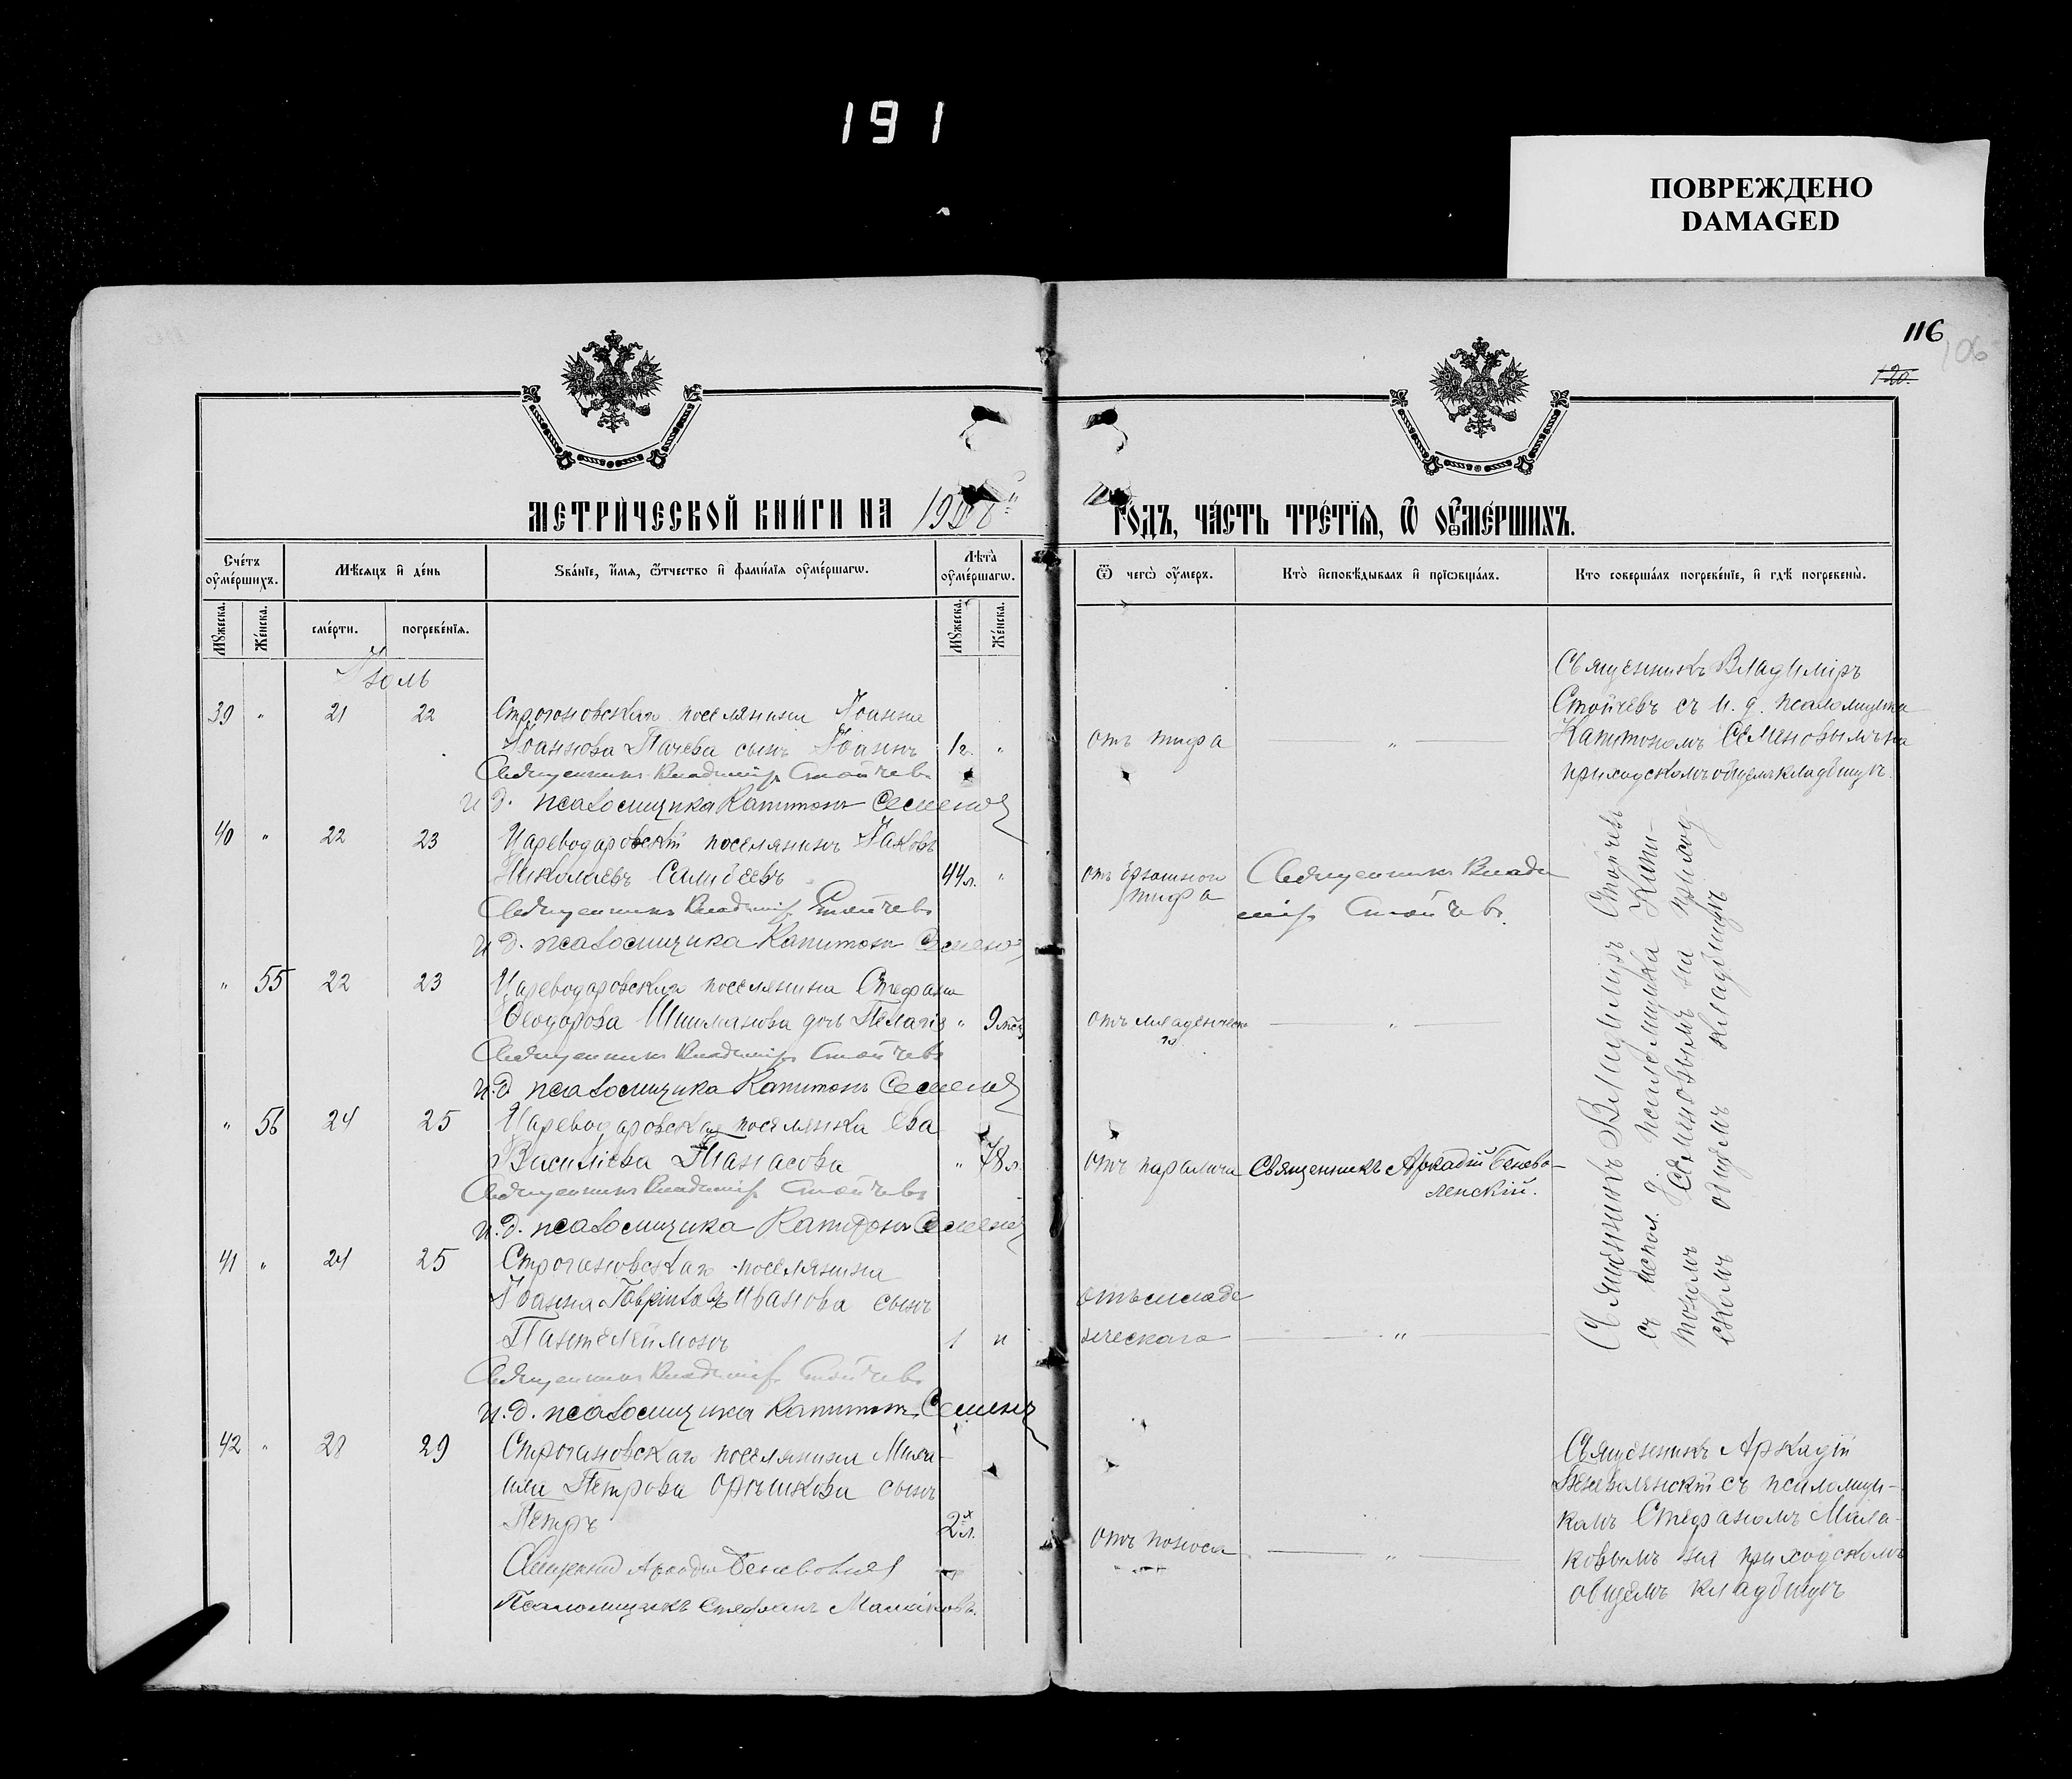 191
ПОВРЕЖДЕНО
DAMAGED
116
106
120.
МЕТРИЧЕСКОЙ КНИГИ НА 190
ГОДЪ, ЧАСТЬ ТРЕТІЯ, Ѿ ОУМЕРШИХЪ.
Счетъ оумершихъ.
Мѣсяцъ и день
Званіе, имя, отчество и фамилія оумершагѡ.
Лѣта оумершагѡ.
Ѿ чегѡ оумеръ.
Кто исповѣдывалъ и пріѡбщалъ.
Кто совершалъ погребеніе, и гдѣ погребены.
Мужеска.
Женска.
смерти.
погребенія.
Мужеска.
Женска.
Іюль
39 " 21 22 Строгановскаго поселянина Іоанна
Іоаннова Пачева сынъ Іоаннъ 1г. "
отъ тифа
"
Священникъ Владиміръ
Стойчевъ съ и. д. псаломщика
Капитономъ Семеновымъ на
приходскомъ общемъ кладбищѣ.
Священникъ Владиміръ Стойчевъ
и д. псаломщика Капитонъ Семеновъ
40 " 22 23 Цареводаровскій поселянинъ Іаковъ
Николаевъ 44л. "
отъ брюшного
тифа
Священникъ Влади
міръ Стойчевъ.
Священникъ Владиміръ Стойчевъ
и. д. псаломщика Капитонъ Семеновъ
" 55 22 23 Цареводаровскаго поселянина Стефана
Ѳеодорова Шишманова дочь Пелагія " 9 мѣс.
отъ младенческа
го
"
Священникъ Владиміръ Стойчевъ
и.д псаломщика Капитонъ Семеновъ
" 56 24 25 Цареводаровская поселянка Ева
Василіева Танасова " 78 л.
отъ паралича
Священникъ Аркадій Бенево-
ленскій.
Священникъ Владиміръ Стойчевъ
и. д. псаломщика Капитонъ Семеновъ
41 " 24 25 Строгановскаго поселянина
Іоанна Гавріилова Иванова сынъ
Пантелеймонъ 1 "
отъ младе
нческаго
"
Священникъ Владиміръ Стойчевъ
и. д. псаломщика Капитонъ Семеновъ
Священникъ Владиміръ Стойчевъ
съ испол. д. псаломщика Капи-
тономъ Семеновымъ на приход-
скомъ общемъ кладбищѣ
42 " 28 29 Строгановскаго поселянина Миха-
ила Петрова сынъ
Петръ 2х л.
отъ поноса
"
Священникъ Аркадій
Беневоленскій съ псаломщи-
комъ Стефаномъ Мала-
ковымъ на приходскомъ
общемъ кладбищѣ
Священникъ Аркадій
Псаломщикъ Стефанъ Малаковъ.